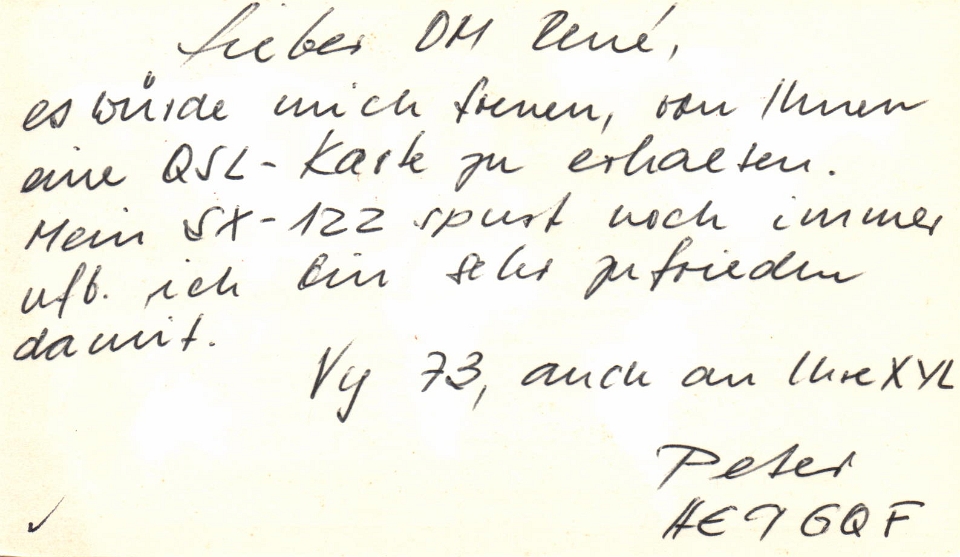 Lieber OM René,
es würde mich freuen, von Ihnen
eine QSL-Karte zu erhalten.
Mein SX-122 spurt noch immer
ufb. ich bin sehr zufrieden
damit.
Vy 73, auch an Ihre XYL
Peter
HE9GQF